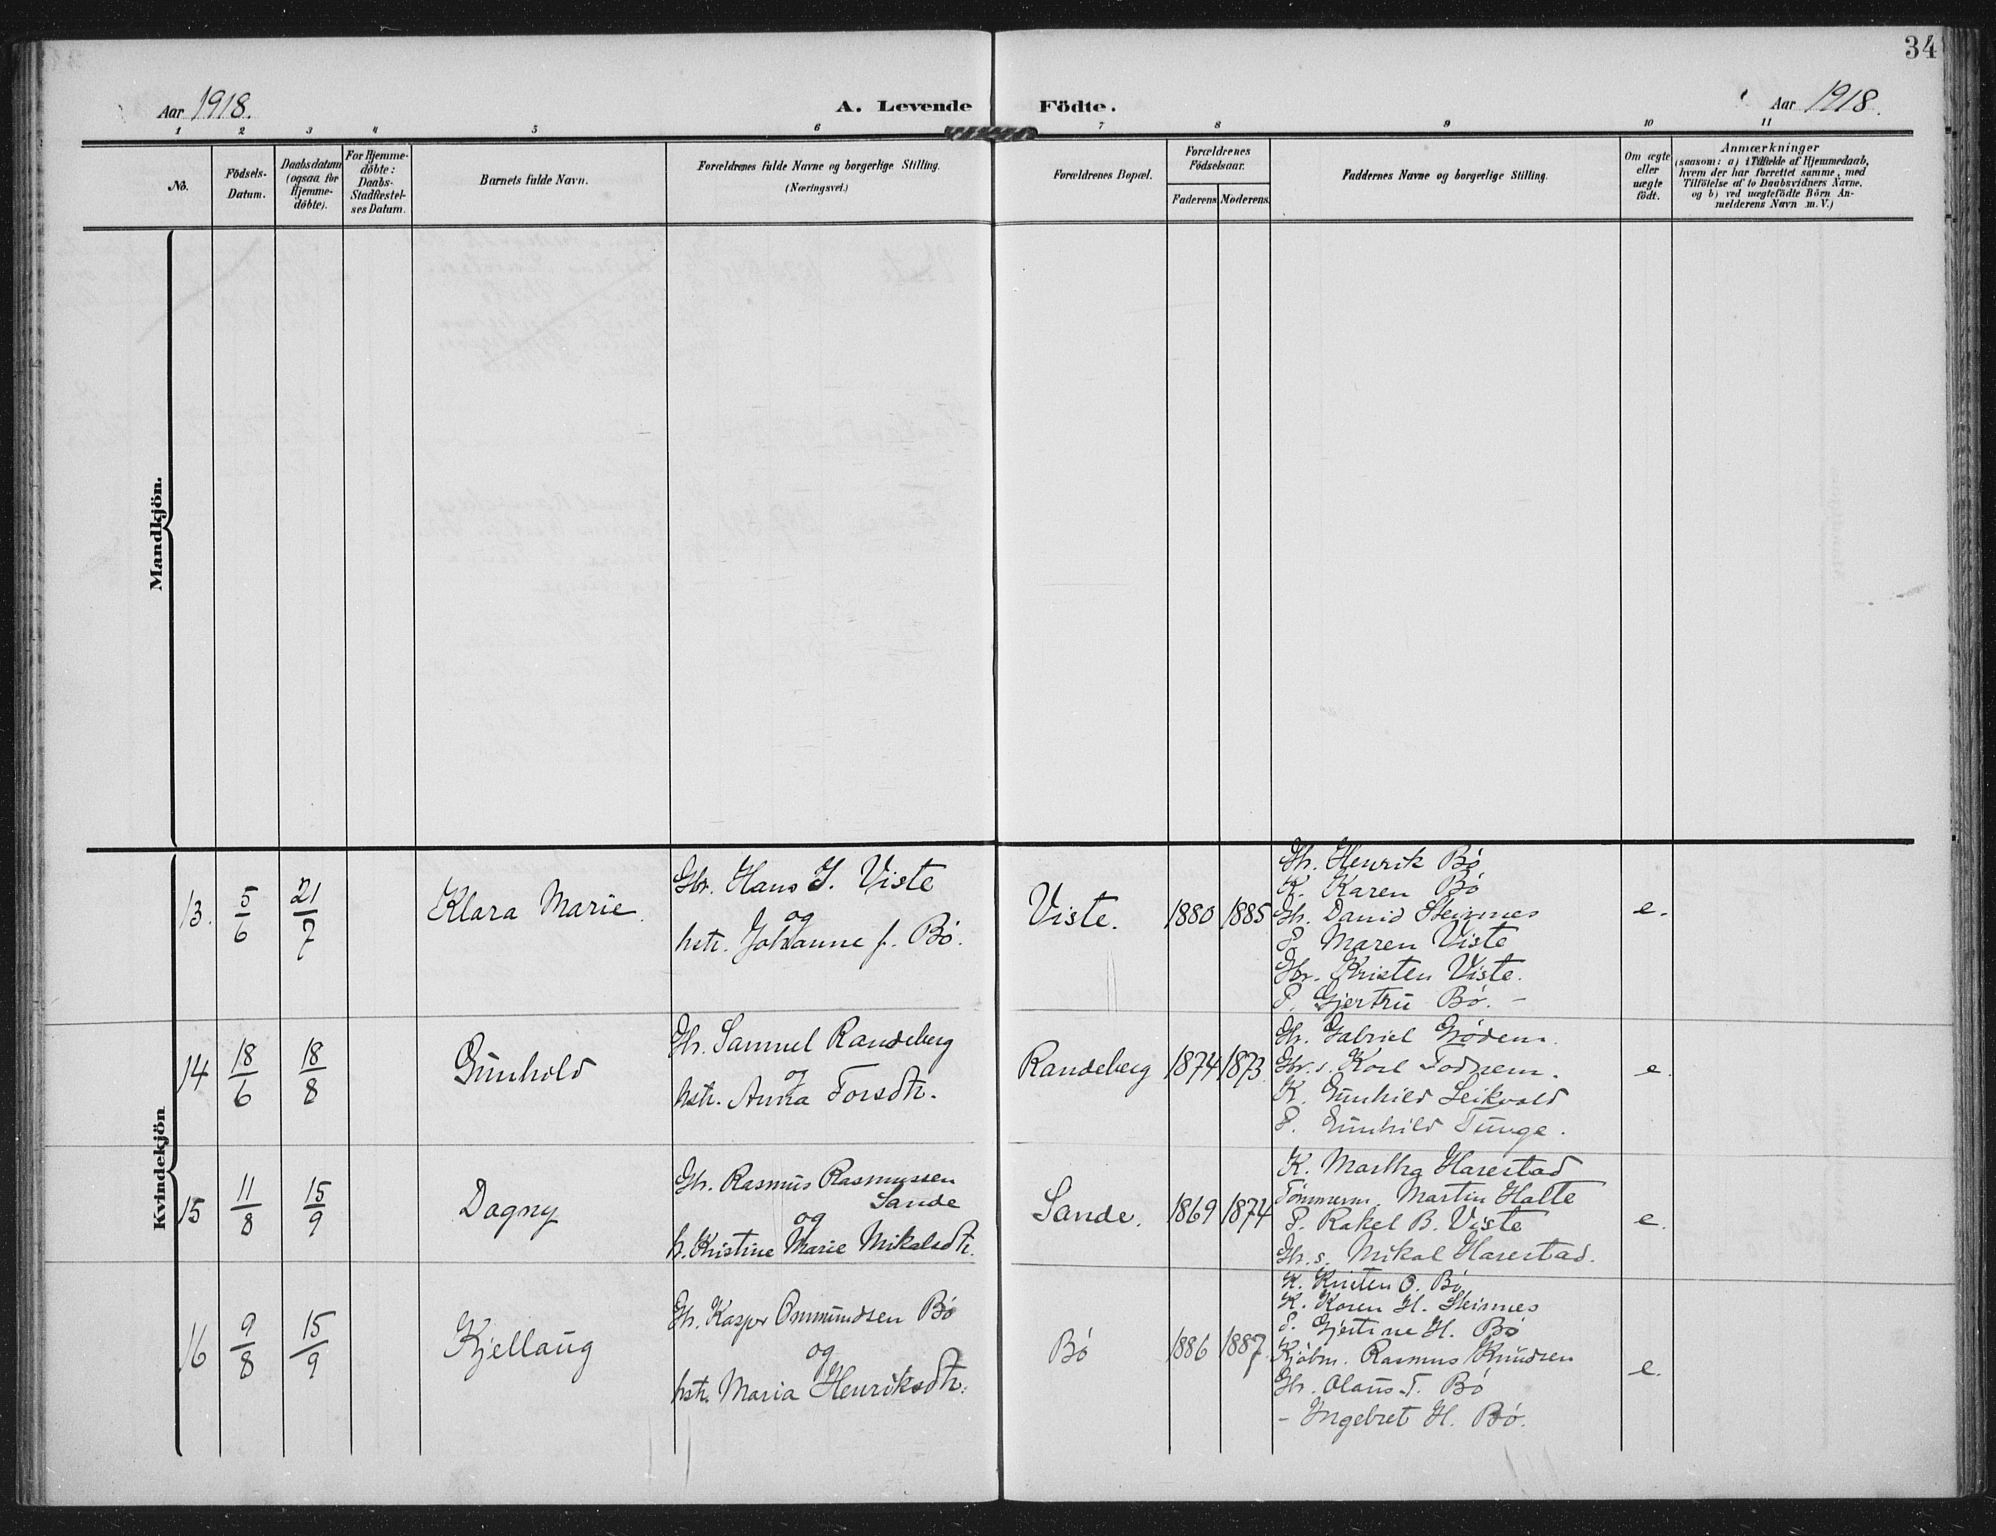 34
Aar 1918.
A. Levende Födte.
Aar 1918.
1 2 3 4 5 6 7 8 9 10 11
No.
Födsels-
Datum.
Daabsdatum
(ogsaa for
Hjemme-
döbte).
For Hjemme-
döbte:
Daabs-
Stadfæstel-
ses Datum.
Barnets fulde Navn.
Forældrenes fulde Navne og borgerlige Stilling.
(Næringsvei.)
Forældrenes Bopæl.
Forældrenes
Födselsaar.
Faderens. Moderens.
Faddernes Navne og borgerlige Stilling.
Om ægte
eller
uægte
födt.
Anmærkninger
(saasom: a) i Tilfælde af Hjemmedaab,
hvem der har forrettet samme, med
Tilföielse af to Daabsvidners Navne,
og b) ved uægtefödte Börn An-
melderens Navn m. V.)
Mandkjön.
Kvindekjön
13. 5/6 21/7
Klara Marie.
Gbr. Hans J. Viste
og
hstr. Johanne f. Bø.
Viste. 1880 1885
Gh. Henrik Bø
K. Karen Bø
Gh. David Steinnes
P. Maren Viste
Gbr. Kristen Viste.
P. Gjertru Bø. -
e.
14 18/6 18/8
Gunhild
Gh. Samuel Randeberg
og
hstr. Anna Torsdtr.
Randeberg 1874 1873.
Gh. Gabriel Grødem.
Gbr. s. Karl Todnem.
K. Gunhild Leikvold
P. Gunhild Tunge.
e.
15 11/8 15/9
Dagny
Gh. Rasmus Rasmussen
Sande
og
h. Kristine Marie Mikalsdtr.
Sande. 1869 1874
K. Martha Harestad
Tømmerm. Martin Halte
P. Rakel B. Viste
Gh. s. Mikal Harestad.
e.
16 9/8 15/9
Kjellaug
Gh. Kasper Ommundsen Bø
og
hstr. Maria Henriksdtr.
Bø 1886 1887.
K. Kirsten O. Bø
K. Karen H. Steinnes
P. Gjertine H. Bø
Kjøbm. Rasmus Knudsen
Gh. Olaus T. Bø
- Ingebret H. Bø.
e.